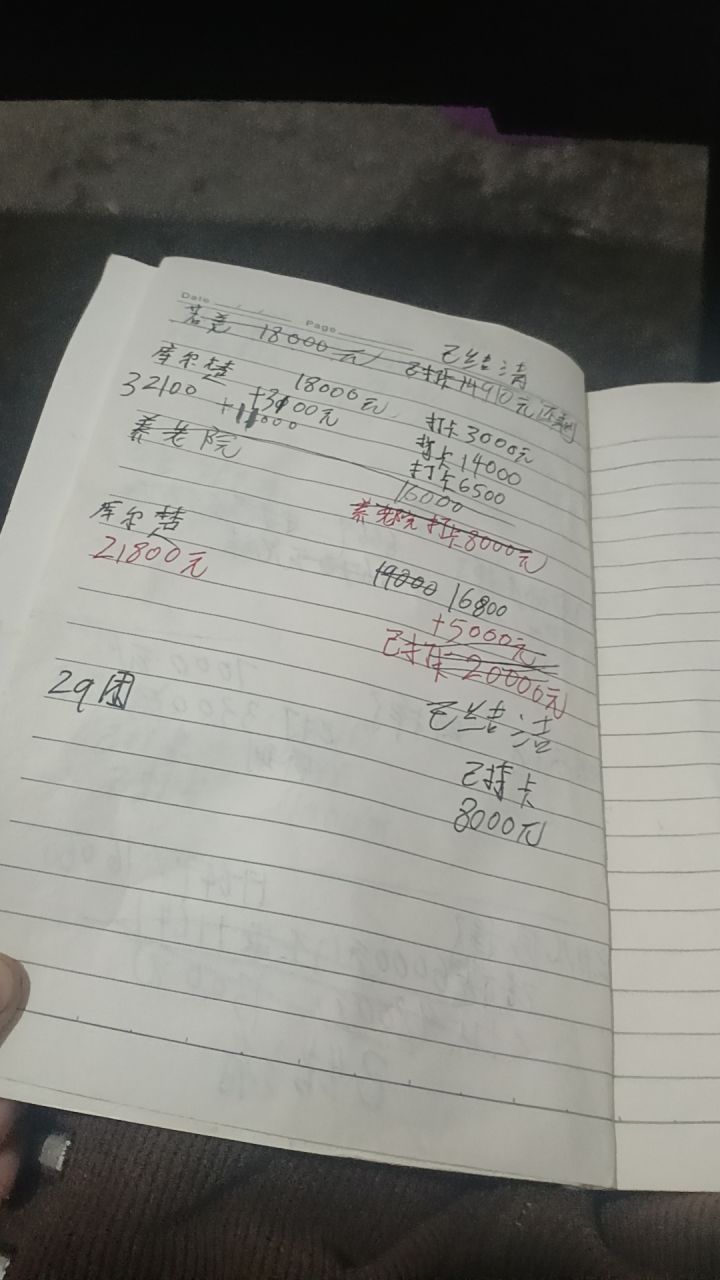 Date Page
若羌 18000元 已结清
已打卡14910元还剩
库尔楚 18000元 打卡3000元
32100 +3100元 打卡14000
+11000 打卡6500
养老院 16000
养老院打卡8000元
库尔楚
21800元 19000 16800
+5000元
已打卡20000元
29团 已结清
已持卡
8000元